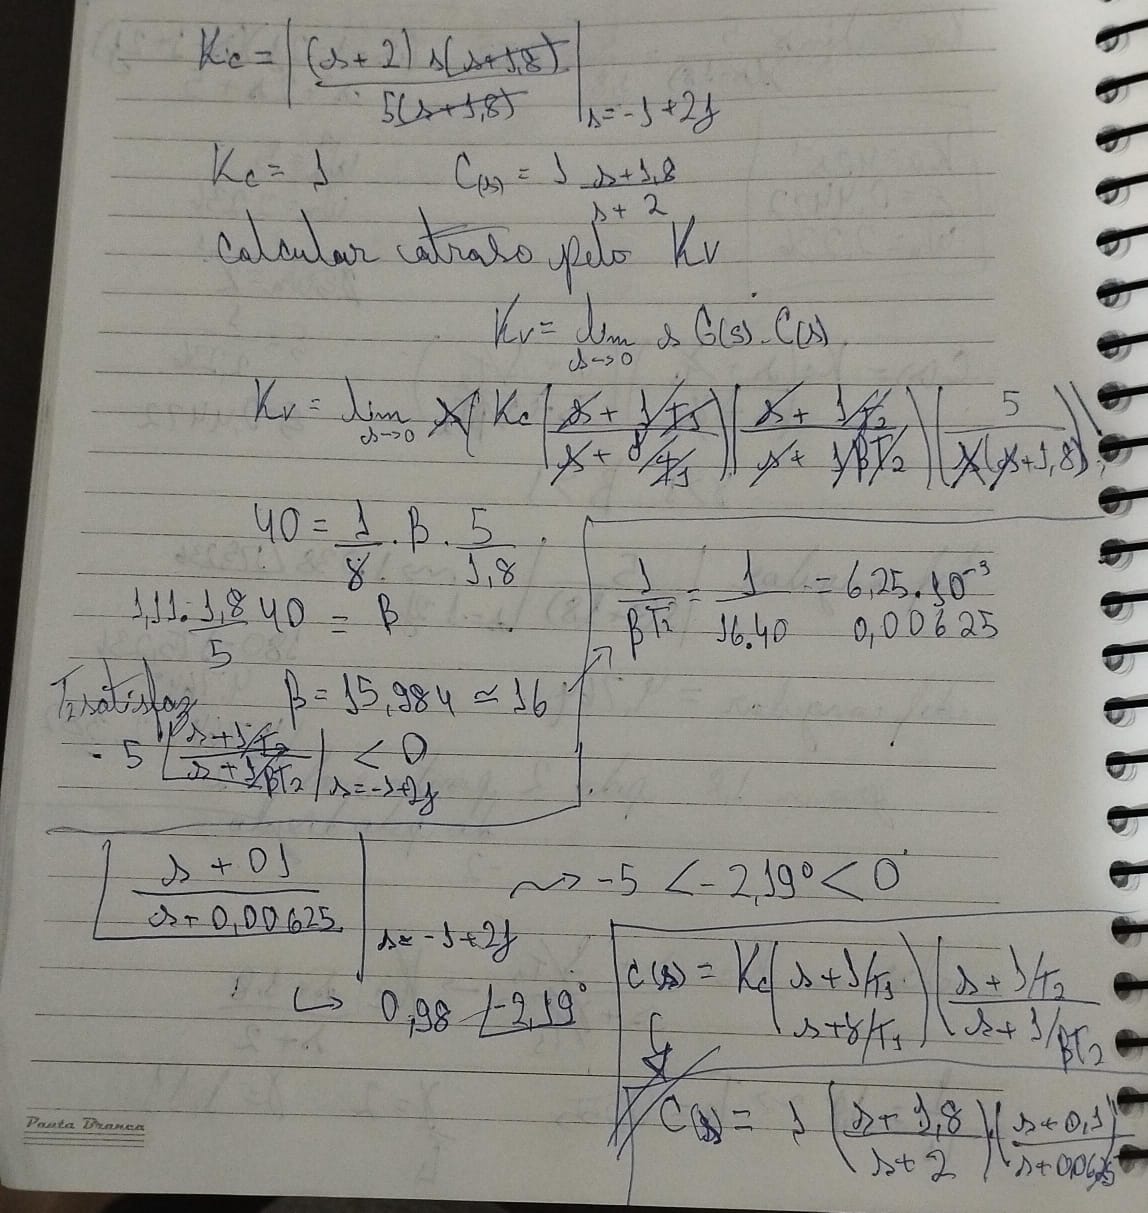 Kc = |(s+2) s(s+1,8) / 5(s+1,8)| s=-1+2j
Kc = 1 C(s) = 1 s+1,8 / s+2
Calcular atraso pelo Kv
Kv = lim s→0 s G(s).C(s)
Kv = lim s→0 s( Kc (s + 1/T1 / s + γ/T1) (s + 1/T2 / s + 1/βT2) (5 / s(s+1,8)))
40 = 1/γ . β . 5/1,8
1,11. 1,8/5 40 = β
β = 15,984 ≃ 16
1/βT2 = 1/16.40 = 6,25.10⁻³
0,00625
T2 satisfaz
- 5 ∠ s+1/T2 / s+1/βT2 | s=-1+2j < 0
∠ s + 01 / s+0,00625 | s=-1+2j
~> -5 < -2,19° < 0
↳ 0,98 ∠-2,19°
C(s) = Kc( s+1/T1 / s+γ/T1 ) ( s+1/T2 / s+1/βT2
C(s) = 1 ( s+1,8 / s+2 ) ( s+0,1 / s+0,0625
Pauta Branca